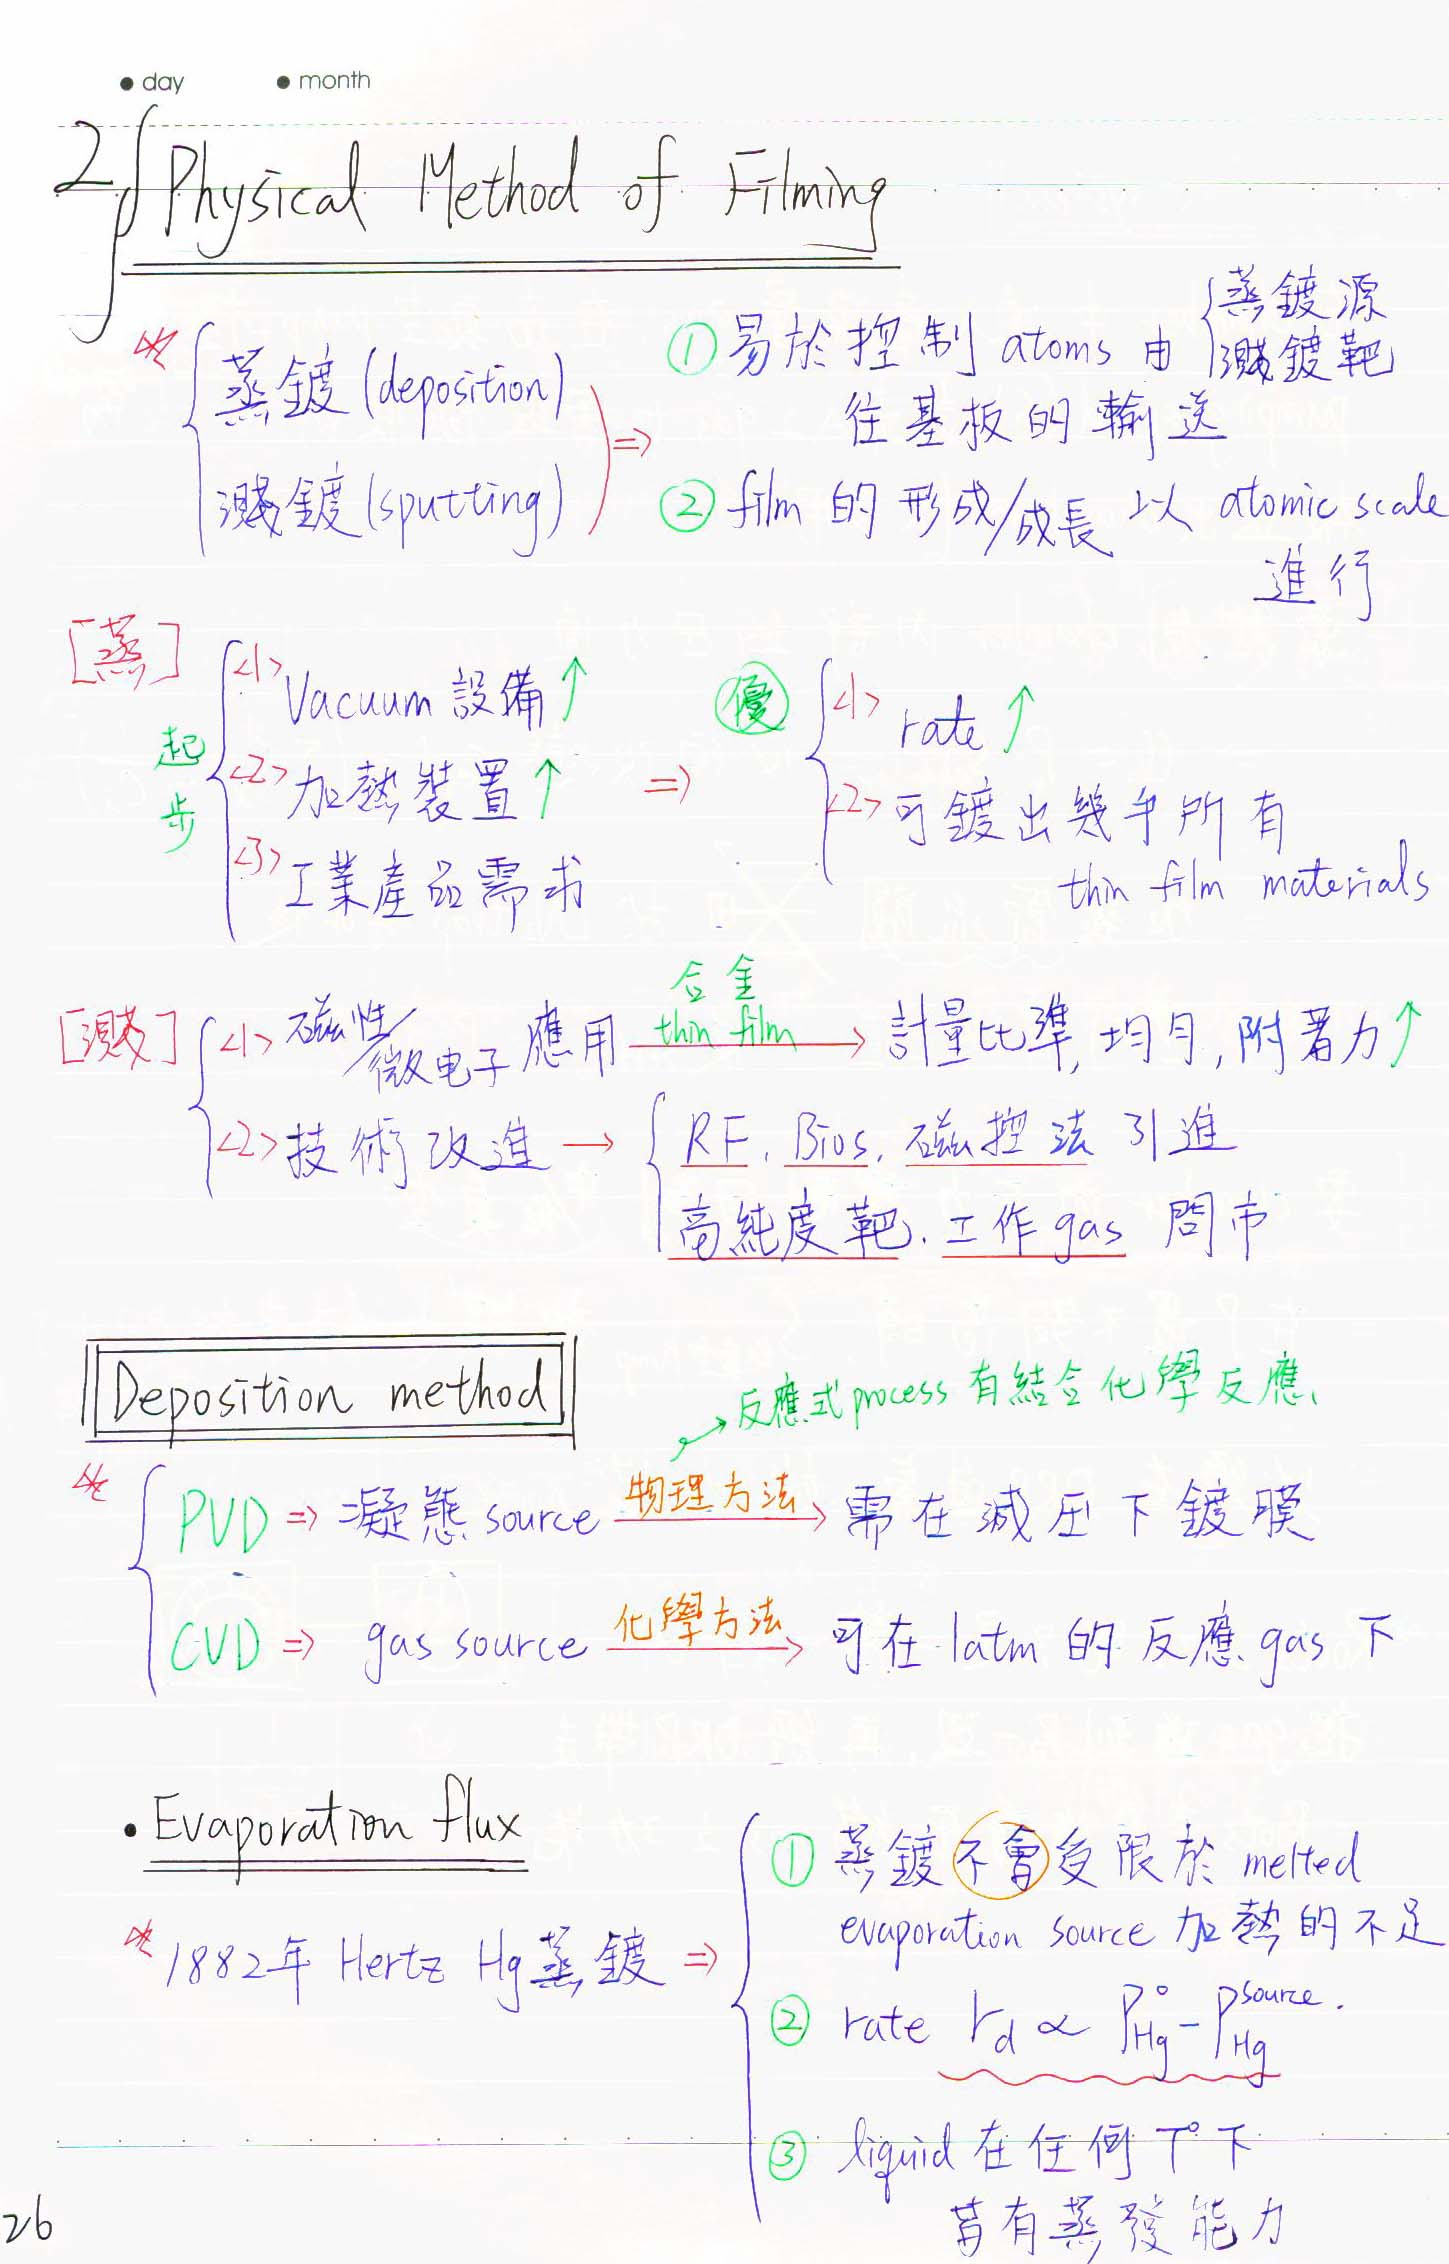 ● day ● month
2 § Physical Method of Filming
※ { 蒸鍍 (deposition)
濺鍍 (sputting) ⇒
① 易於控制 atoms 由 { 蒸鍍源
濺鍍靶
往基板的輸送
② film 的 形成/成長 以 atomic scale
進行
[蒸]
起步
<1> Vacuum 設備 ↑
<2> 加熱裝置 ↑ ⇒
<3> 工業產品需求
優
<1> rate ↑
<2> 可鍍出幾乎所有
thin film materials
[濺] <1> 磁性/微电子 應用 合金 thin film → 計量比準, 均勻, 附著力 ↑
<2> 技術改進 → { RF, Bios, 磁控法 引進
高純度靶, 工作 gas 問市
Deposition method
反應式 process 有結合化學反應、
※ PVD ⇒ 凝態 source 物理方法 → 需在減压下鍍膜
CVD ⇒ gas source 化學方法 → 可在 1atm 的 反應 gas 下
• Evaporation flux
※ 1882年 Hertz Hg 蒸鍍 ⇒
① 蒸鍍不會受限於 melted
evaporation source 加熱的不足
② rate r_d ∝ P°_Hg - P_Hg^source.
③ liquid 在任何 T° 下
皆有蒸發能力
26